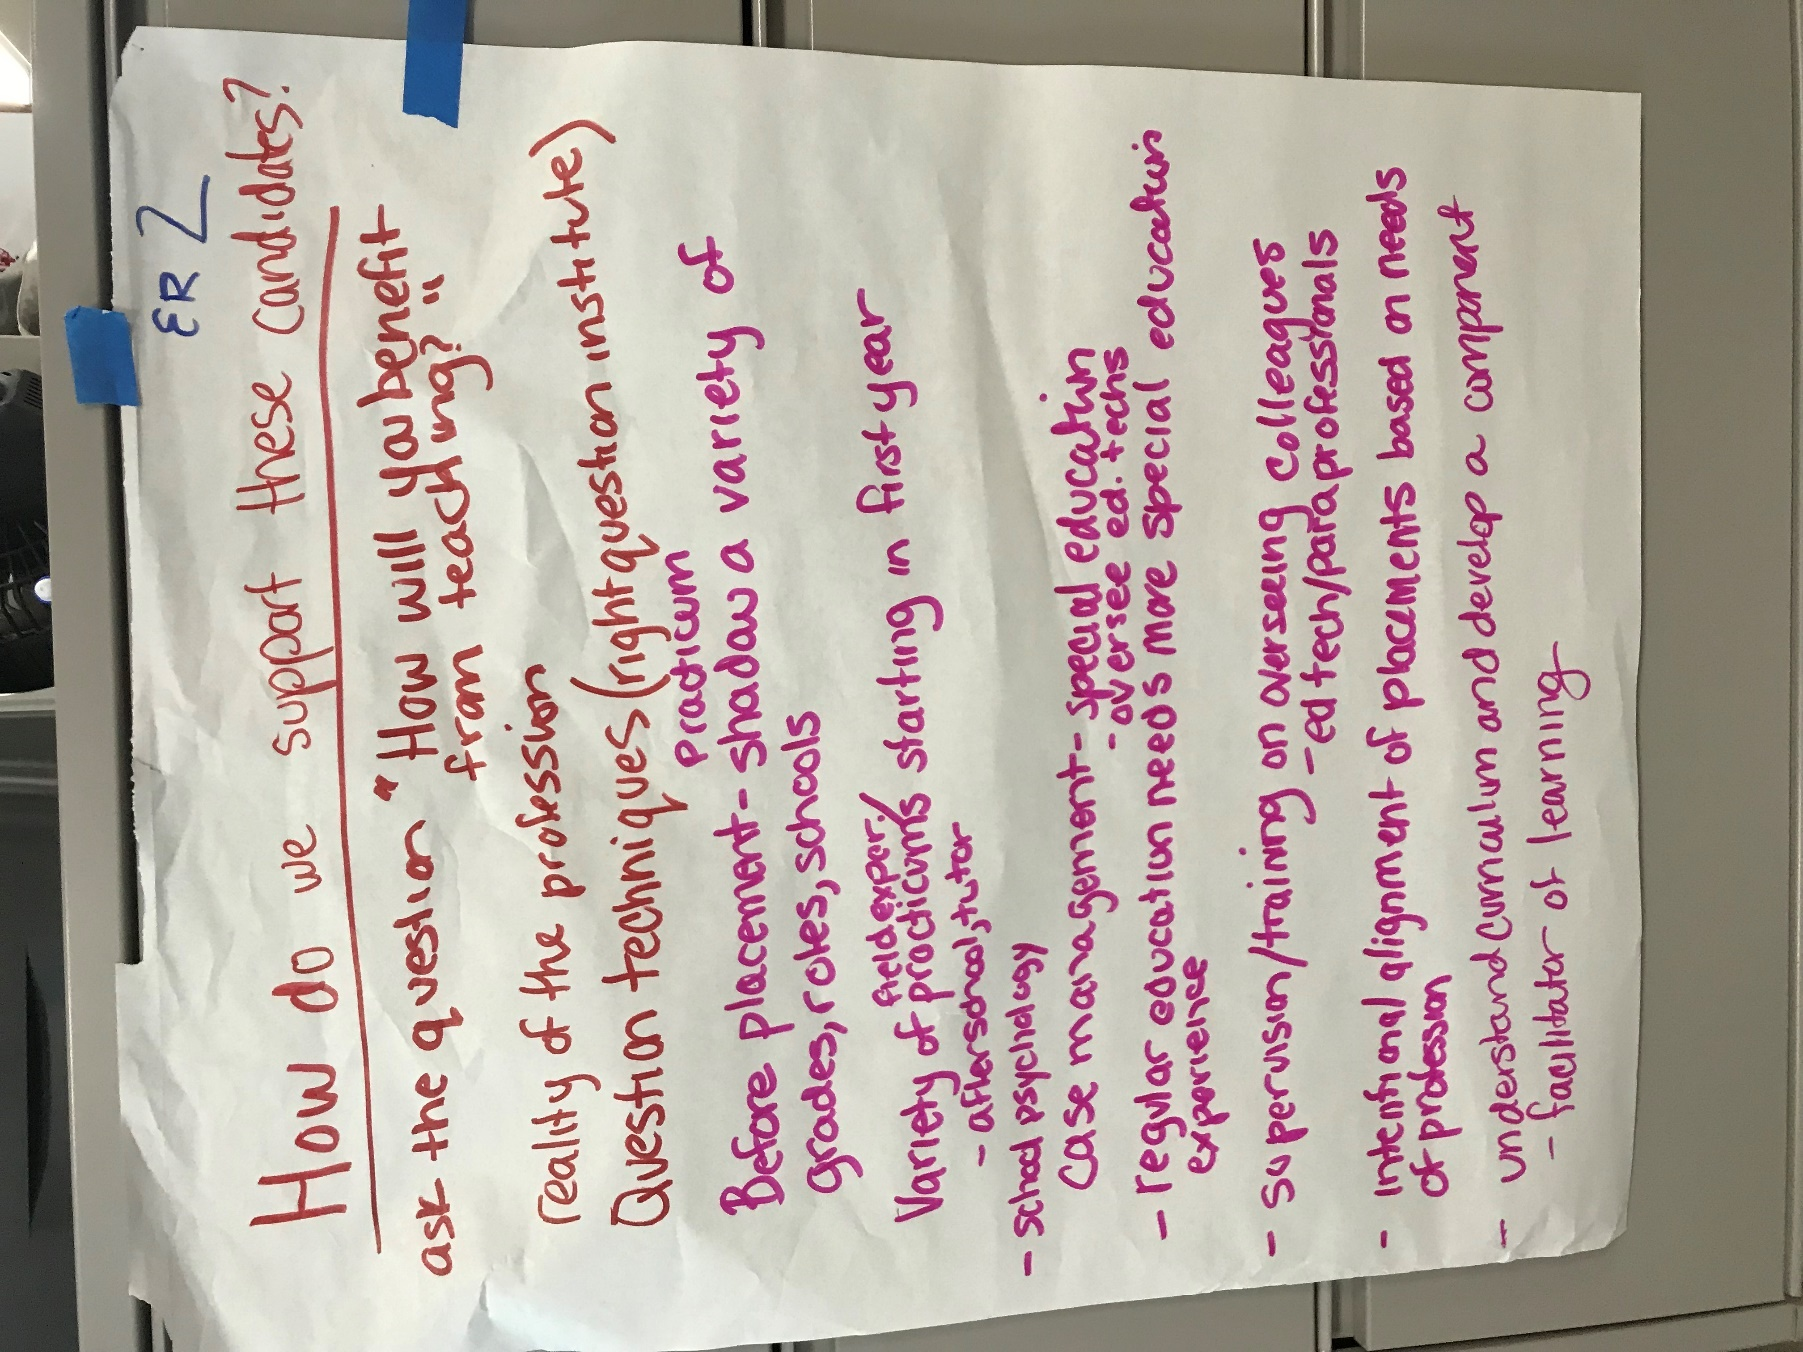 ER 2
How do we support these candidates?
ask the question "How will you benefit
from teaching?"
reality of the profession
Question techniques (right question institute)
practicum
Before placement - shadow a variety of
grades, roles, schools
field exper./
Variety of practicums starting in first year
- afterschool, tutor
- school psychology
Case management - special education
- oversee ed. techs
- regular education needs more special education
experience
- supervision/training on overseeing colleagues
- ed tech/paraprofessionals
- intentional alignment of placements based on needs
of profession
- understand curriculum and develop a component
- facilitator of learning